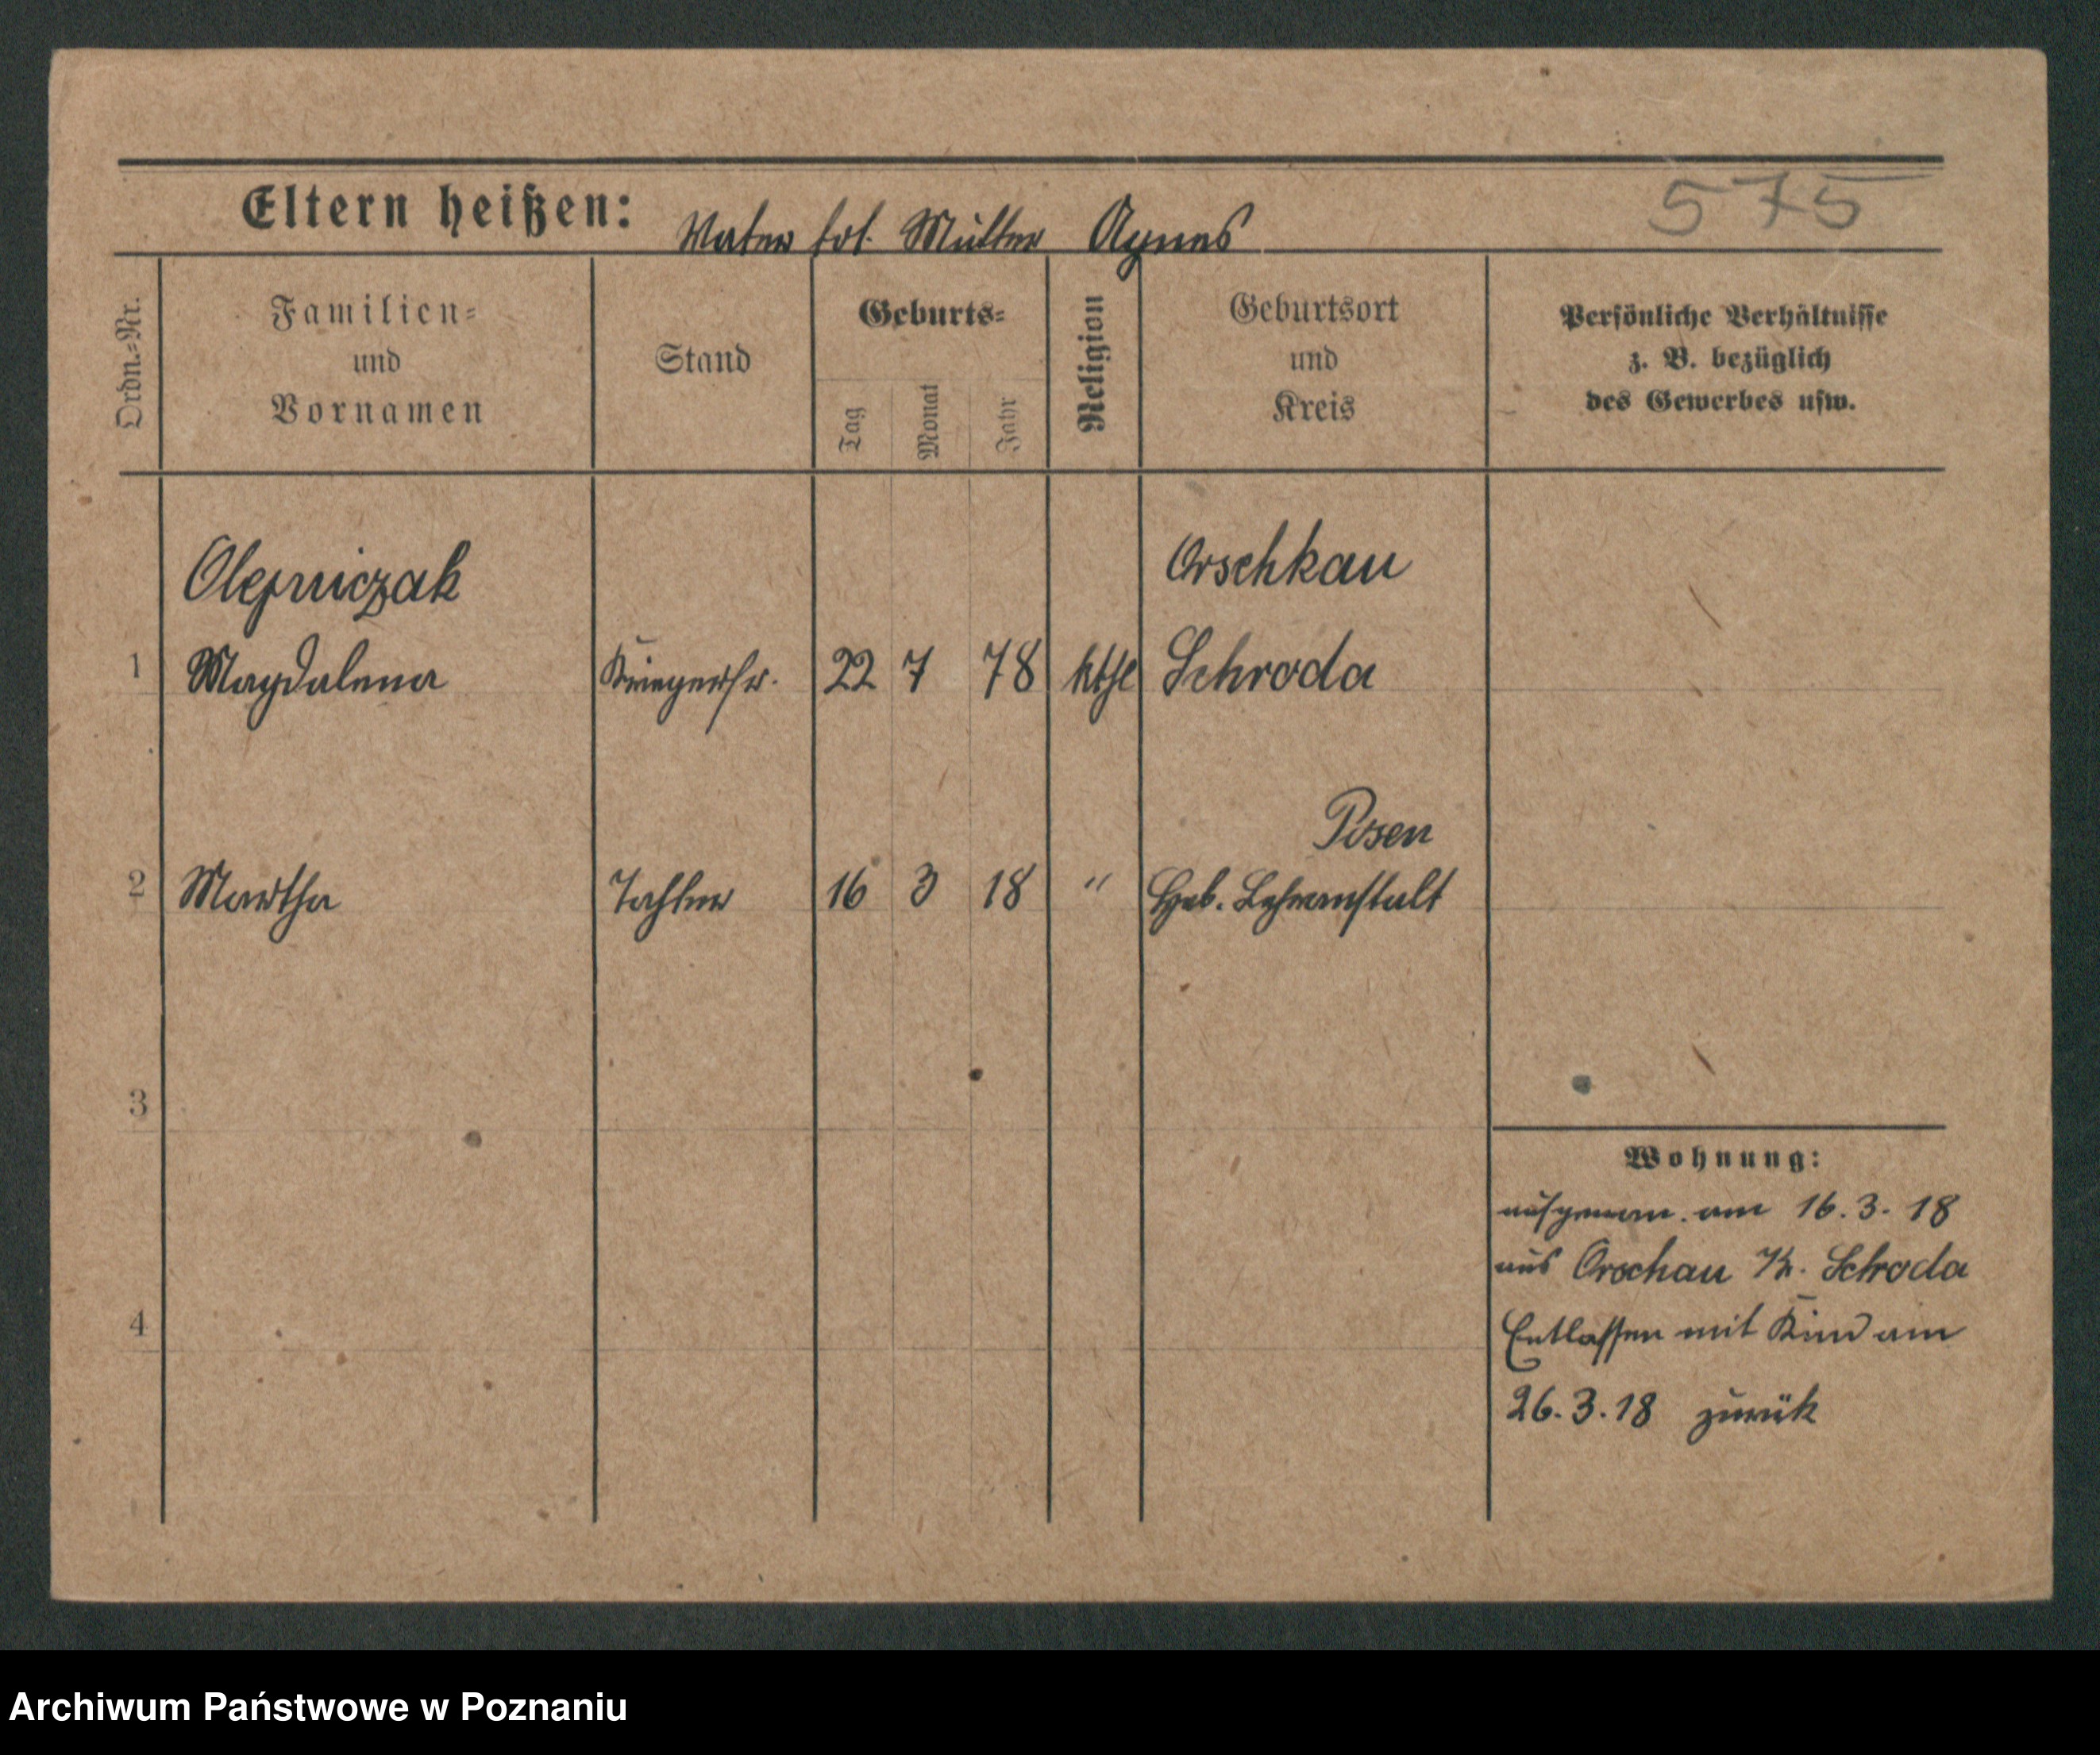 575
Eltern heißen: Vater tot. Mutter Agnes
Ordn.-Nr.
Familien-
und
Vornamen
Stand
Geburts-
Tag
Monat
Jahr
Religion
Geburtsort
und
Kreis
Persönliche Verhältnisse
z. B. bezüglich
des Gewerbes usw.
Olejniczak Orschkau
1 Magdalena Kriegerfr. 22 7 78 kth Schroda
Posen
2 Martha Tochter 16 3 18 " Heb. Lehranstalt
3
4
Wohnung:
aufgenom. am 16.3.18
aus Orschau Kr. Schroda
Entlassen mit Kind am
26.3.18 zurük
Archiwum Państwowe w Poznaniu